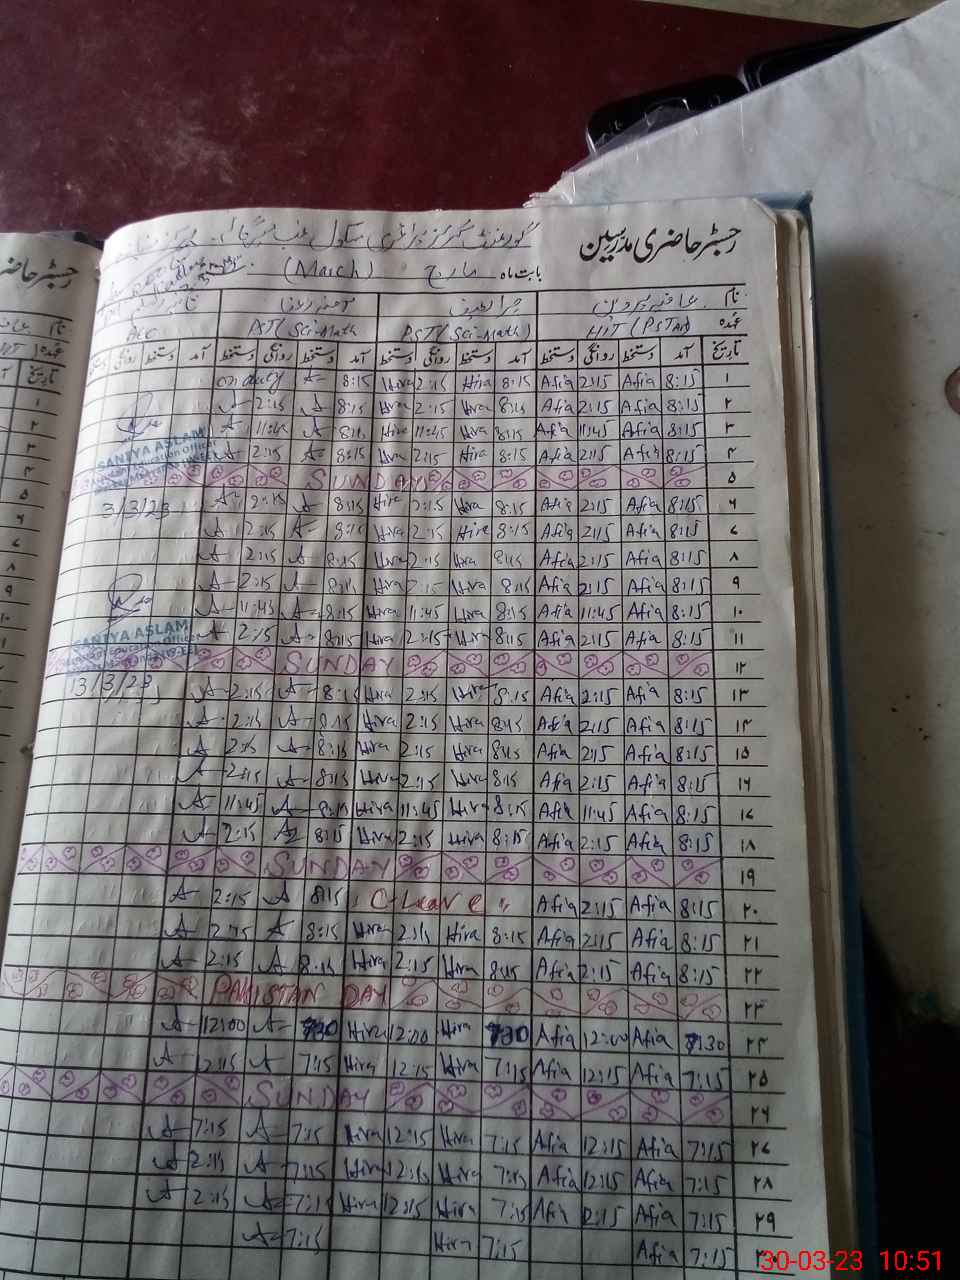 رجسٹر حاضری مدرسین
گورنمنٹ گرلز پرائمری سکول
بابت ماہ مارچ (March)
نام
عہدہ HT (PST Arts) PST (Sci-Math) PST (Sci-Math)
تاریخ آمد دستخط روانگی دستخط آمد دستخط روانگی دستخط آمد دستخط روانگی دستخط آمد دستخط روانگی دستخط
۱ 8:15 Afia 2:15 Afia 8:15 Hira 2:15 Hira 8:15 A on duty
۲ 8:15 Afia 2:15 Afia 8:15 Hira 2:15 Hira 8:15 A 2:15 A
۳ 8:15 Afia 11:45 Afia 8:15 Hira 11:45 Hira 8:15 A 11:45 A
۴ 8:15 Afia 2:15 Afia 8:15 Hira 2:15 Hira 8:15 A 2:15 A
SANIYA ASLAM
۵ SUNDAY
3/3/23
۶ 8:15 Afia 2:15 Afia 8:15 Hira 2:15 Hira 8:15 A 2:15 A
۷ 8:15 Afia 2:15 Afia 8:15 Hira 2:15 Hira 8:15 A 2:15 A
۸ 8:15 Afia 2:15 Afia 8:15 Hira 2:15 Hira 8:15 A 2:15 A
۹ 8:15 Afia 2:15 Afia 8:15 Hira 2:15 Hira 8:15 A 2:15 A
۱۰ 8:15 Afia 11:45 Afia 8:15 Hira 11:45 Hira 8:15 A 11:45 A
۱۱ 8:15 Afia 2:15 Afia 8:15 Hira 2:15 Hira 8:15 A 2:15 A
SANIYA ASLAM
۱۲ SUNDAY
13/3/23
۱۳ 8:15 Afia 2:15 Afia 8:15 Hira 2:15 Hira 8:15 A 2:15 A
۱۴ 8:15 Afia 2:15 Afia 8:15 Hira 2:15 Hira 8:15 A 2:15 A
۱۵ 8:15 Afia 2:15 Afia 8:15 Hira 2:15 Hira 8:15 A 2:15 A
۱۶ 8:15 Afia 2:15 Afia 8:15 Hira 2:15 Hira 8:15 A 2:15 A
۱۷ 8:15 Afia 11:45 Afia 8:15 Hira 11:45 Hira 8:15 A 11:45 A
۱۸ 8:15 Afia 2:15 Afia 8:15 Hira 2:15 Hira 8:15 A 2:15 A
۱۹ SUNDAY
۲۰ 8:15 Afia 2:15 Afia "C-Leave" 8:15 A 2:15 A
۲۱ 8:15 Afia 2:15 Afia 8:15 Hira 2:15 Hira 8:15 A 2:15 A
۲۲ 8:15 Afia 2:15 Afia 8:15 Hira 2:15 Hira 8:15 A 2:15 A
۲۳ PAKISTAN DAY
۲۴ 7:30 Afia 12:00 Afia 7:30 Hira 12:00 Hira 7:30 A 12:00 A
۲۵ 7:15 Afia 12:15 Afia 7:15 Hira 12:15 Hira 7:15 A 12:15 A
۲۶ SUNDAY
۲۷ 7:15 Afia 12:15 Afia 7:15 Hira 12:15 Hira 7:15 A 7:15 A
۲۸ 7:15 Afia 12:15 Afia 7:15 Hira 12:15 Hira 7:15 A 2:15 A
۲۹ 7:15 Afia 12:15 Afia 7:15 Hira 12:15 Hira 7:15 A 2:15 A
۳۰ 7:15 Afia 7:15 Hira 7:15 A
30-03-23 10:51